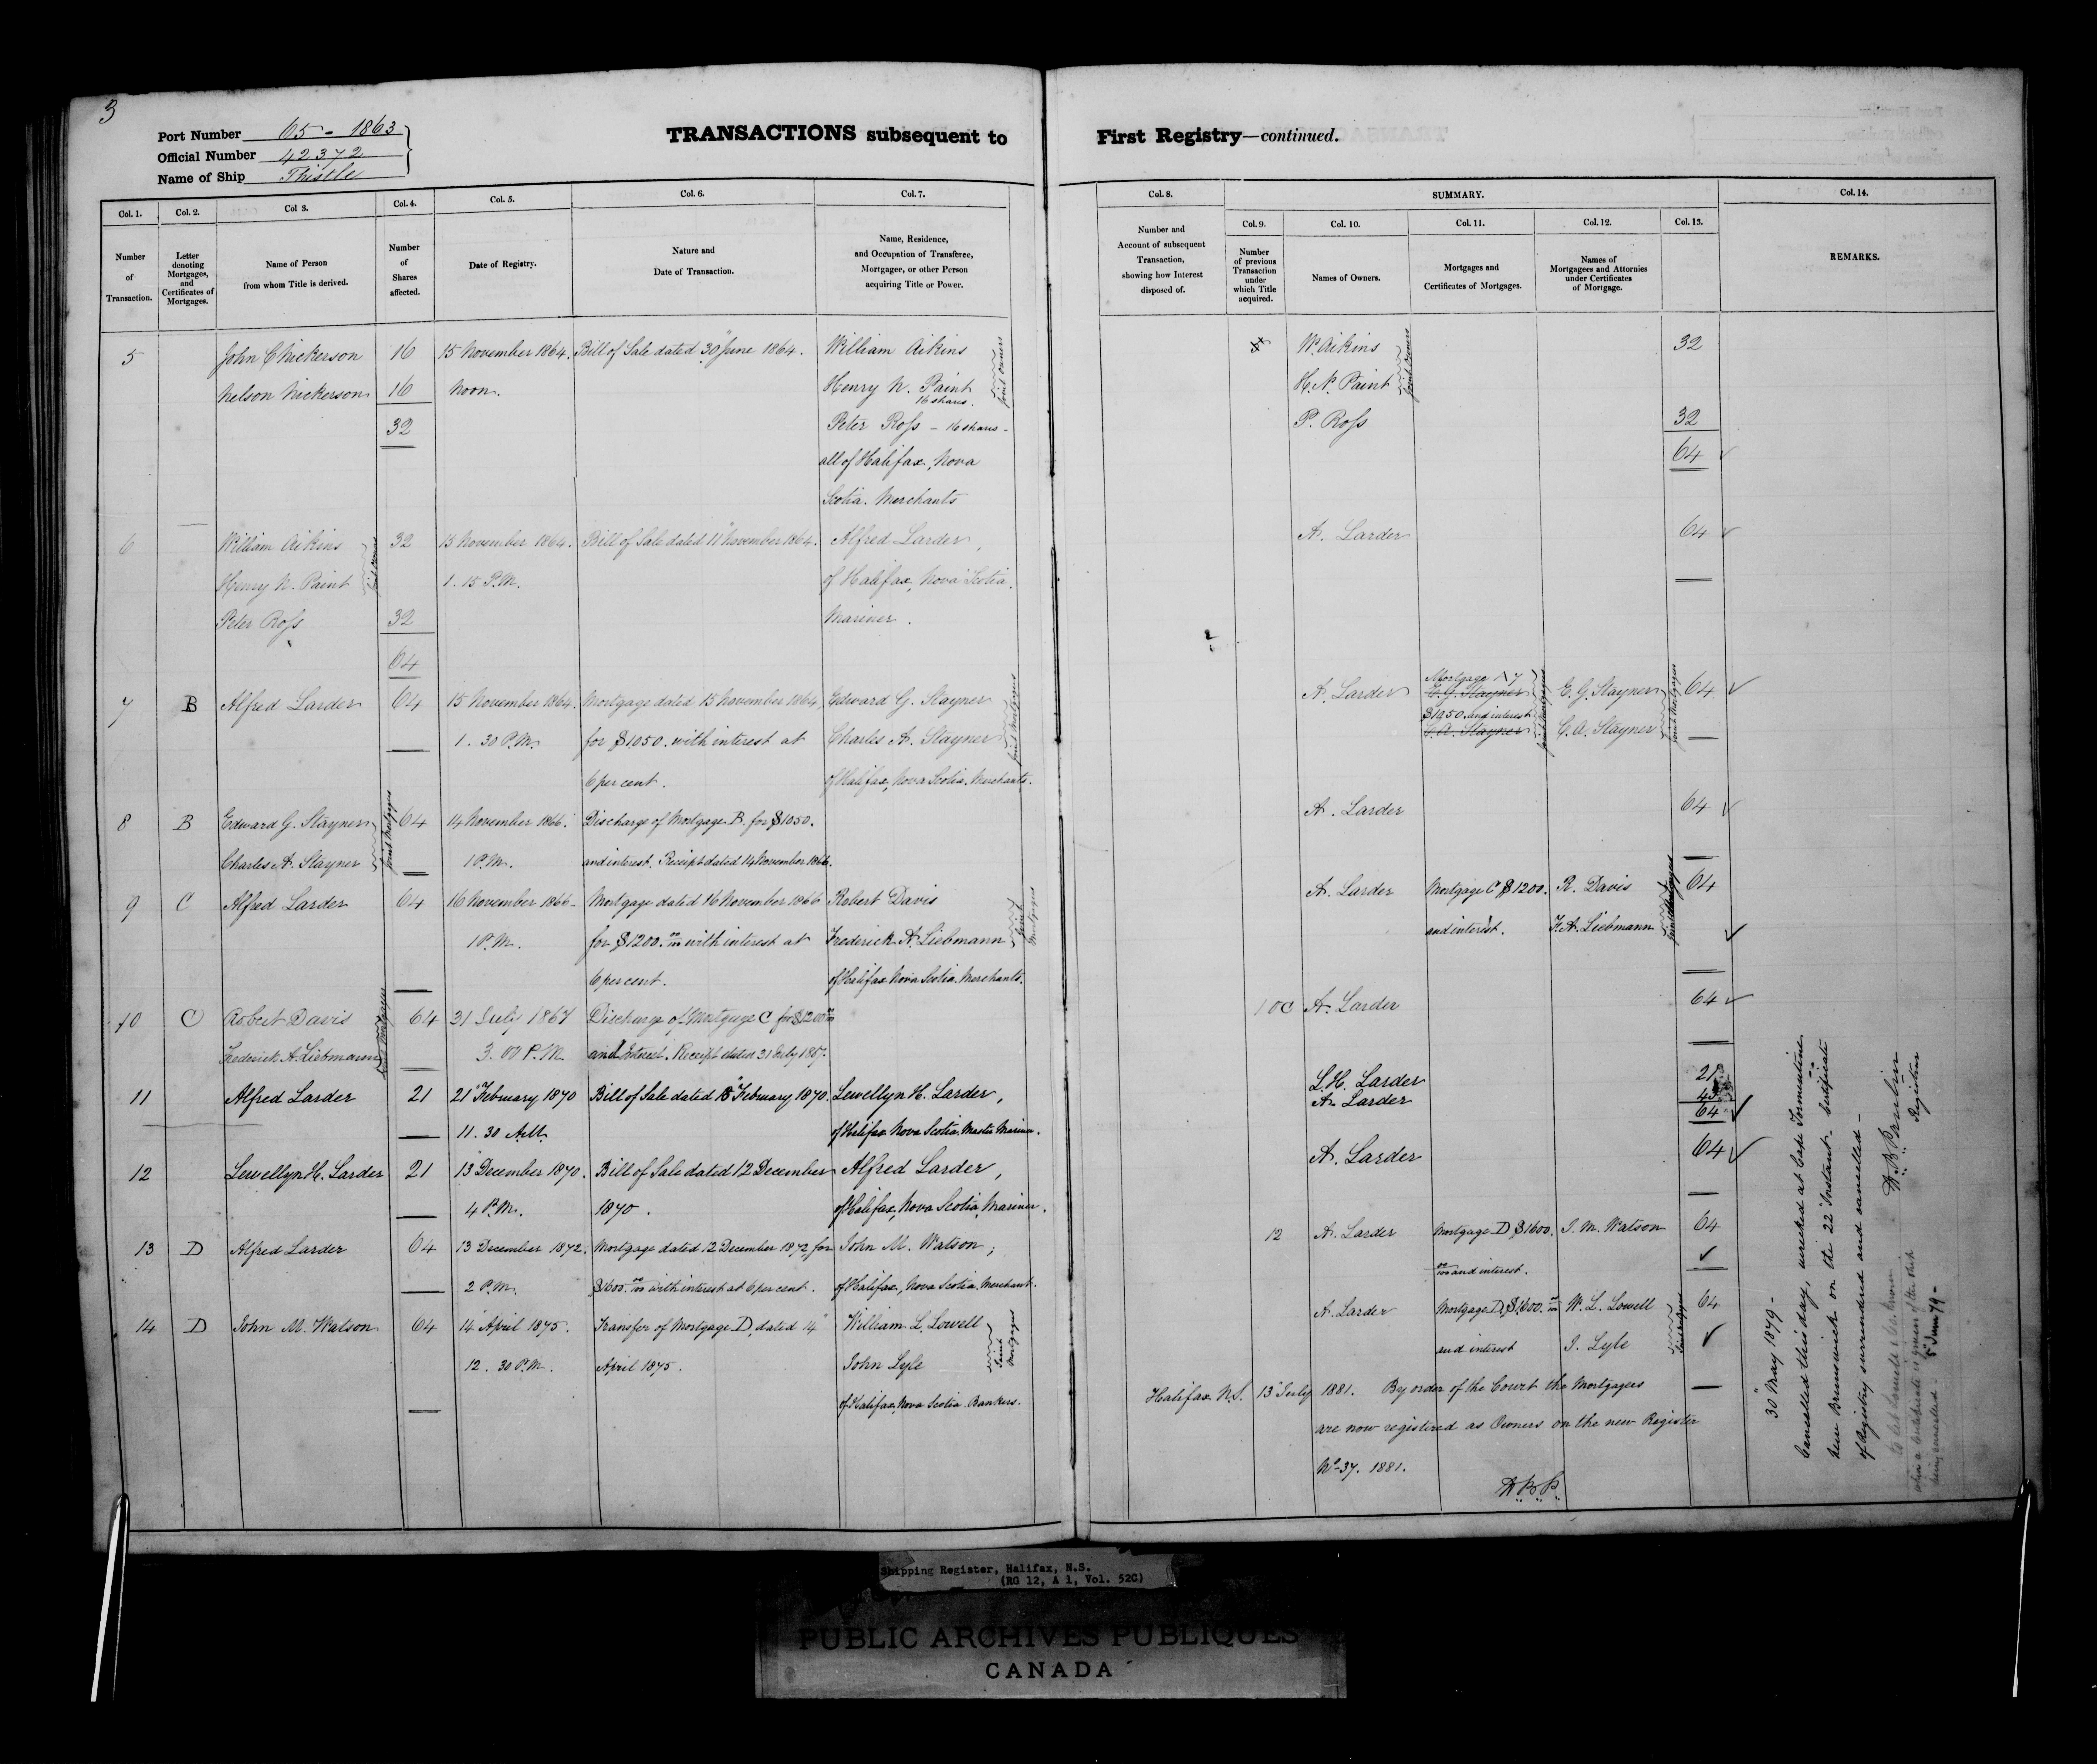 3
Port Number 65 - 1863
Official Number 42372
Name of Ship Thistle
TRANSACTIONS subsequent to First Registry—continued.
Col. 1. Col. 2. Col 3. Col. 4. Col. 5. Col. 6. Col. 7.
Number of Transaction.
Letter denoting Mortgages, and Certificates of Mortgages.
Name of Person from whom Title is derived.
Number of Shares affected.
Date of Registry.
Nature and Date of Transaction.
Name, Residence, and Occupation of Transferee, Mortgagee, or other Person acquiring Title or Power.
5 John C Nickerson 16 15 November 1864. Bill of Sale dated 30" June 1864. William Aikins
Nelson Nickerson 16 Noon. Henry N. Paint Joint Owners
16 shares.
32 Peter Ross - 16 shares -
all of Halifax, Nova
Scotia. Merchants
6 William Aikins 32 15 November 1864. Bill of Sale dated 11" November 1864. Alfred Larder,
Henry N. Paint Joint Owners 1. 15 P.M. of Halifax, Nova Scotia.
Peter Ross 32 Mariner.
64
7 B Alfred Larder 64 15 November 1864. Mortgage dated 15 November 1864, Edward G. Stayner
1. 30 P.M. for $1050. with interest at Charles A. Stayner Joint Mortgagees
6 per cent. of Halifax, Nova Scotia. Merchants.
8 B Edward G. Stayner 64 14 November 1866. Discharge of Mortgage B. for $1050.
Charles A. Stayner Joint Mortgagees 1 P.M. and interest. Receipt dated 14 November 1866.
9 C Alfred Larder 64 16 November 1866 - Mortgage dated 16 November 1866 Robert Davis
1 P.M. for $1200. 00/100 with interest at Frederick A. Liebmann Joint Mortgagees
6 per cent. of Halifax Nova Scotia. Merchants.
10 C Robert Davis 64 31 July 1867 Discharge of Mortgage C for $1200 00/100
Frederick A. Liebmann Joint Mortgagees 3. 00 P.M. and Interest. Receipt dated 31 July 1867.
11 Alfred Larder 21 21" February 1870 Bill of Sale dated 18" February 1870. Lewellyn H. Larder,
11. 30 A.M. of Halifax Nova Scotia. Master Mariner.
12 Lewellyn H. Larder 21 13" December 1870. Bill of Sale dated 12 December Alfred Larder,
4 P.M. 1870. of Halifax, Nova Scotia, Mariner.
13 D Alfred Larder 64 13 December 1872. Mortgage dated 12 December 1872, for John M. Watson,
2 P.M. $1600. 00/100 with interest at 6 per cent. of Halifax, Nova Scotia. Merchant.
14 D John M. Watson 64 14" April 1875. Transfer of Mortgage D, dated 14" William L. Lowell
12. 30 P.M. April 1875. John Lyle Joint Mortgagees
of Halifax, Nova Scotia. Bankers.
Col. 8. SUMMARY. Col. 14.
Col. 9. Col. 10. Col. 11. Col. 12. Col. 13.
Number and Account of subsequent Transaction, showing how Interest disposed of.
Number of previous Transaction under which Title acquired.
Names of Owners.
Mortgages and Certificates of Mortgages.
Names of Mortgagees and Attornies under Certificates of Mortgage.
REMARKS.
W. Aikins 32
H. N. Paint Joint Owners
P. Ross 32
64
A. Larder 64
A. Larder Mortgage E. G. Stayner E. G. Stayner 64
$1050 and interest
C. A. Stayner Joint Mortgagees C. A. Stayner Joint Mortgagees
A. Larder 64
A. Larder Mortgage C $1200. R. Davis 64
and interest. F. A. Liebmann Joint Mortgagees
10C A. Larder 64
L. H. Larder 21
A. Larder 43
64
A. Larder 64
12 A. Larder Mortgage D $1600. J. M. Watson 64
00/100 and interest.
A. Larder Mortgage D, $1600. 00/100 W. L. Lowell 64
and interest J. Lyle
Halifax N.S. 13" July 1881. By order of the Court the Mortgagees
are now registered as Owners on the new Register
No 37. 1881.
30" May 1879 -
Cancelled this day, wrecked at Cape Tormentine
New Brunswick on the 22" Instant - Certificate
of Registry surrendered and cancelled -
Registrar
when a Certificate is given of this
being cancelled -
5" June 79 -
Shipping Register, Halifax, N.S.
(RG 12, A 1, Vol. 52C)
PUBLIC ARCHIVES PUBLIQUES
CANADA